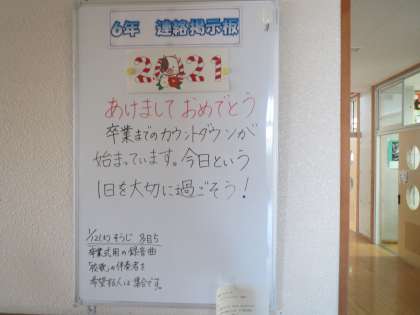 6年 連絡掲示板
2021
あけまして おめでとう
卒業までのカウントダウンが
始まっています。今日という
1日を大切に過ごそう！
1/12(火) そうじ
卒業式用の録音曲
「校歌」の伴奏者を
希望する人は集合です。